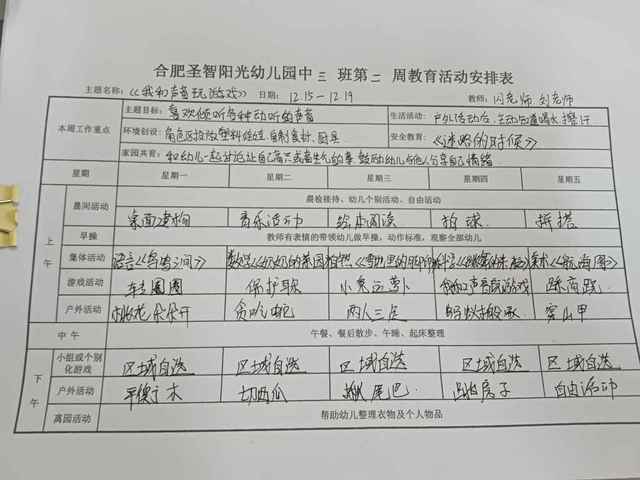 合肥圣智阳光幼儿园中三班第二周教育活动安排表
主题名称:《我和声音玩游戏》 日期: 12.15-12.19 教师: 闪老师 刘老师
本周工作重点
主题目标: 喜欢倾听各种动听的声音
生活活动: 户外活动后,主动知道喝水、擦汗
环境创设: 角色区投放塑料 自制食材、厨具
安全教育:《迷路的时候》
家园共育: 和幼儿一起讨论让自己高兴或者生气的事,鼓励幼儿与他人分享自己情绪
星期 星期一 星期二 星期三 星期四 星期五
上午
晨间活动 晨检接待、幼儿个别活动、自由活动
桌面建构 音乐活动 绘本阅读 拍球 拼搭
早操 教师有表情的带领幼儿做早操,动作标准,观察全部幼儿
集体活动 语言《 》 数学《奶奶的菜园 科学《 美术《
游戏活动 转圈圈 保护球 小兔运萝卜 游戏
户外活动 桃花朵朵开 贪吃蛇 两人三足 穿山甲
中午 午餐、餐后散步、午睡、起床整理
下午
小组或个别化游戏 区域自选 区域自选 区域自选 区域自选 区域自选
户外活动 平衡木 切西瓜 揪尾巴 房子 自由活动
离园活动 帮助幼儿整理衣物及个人物品